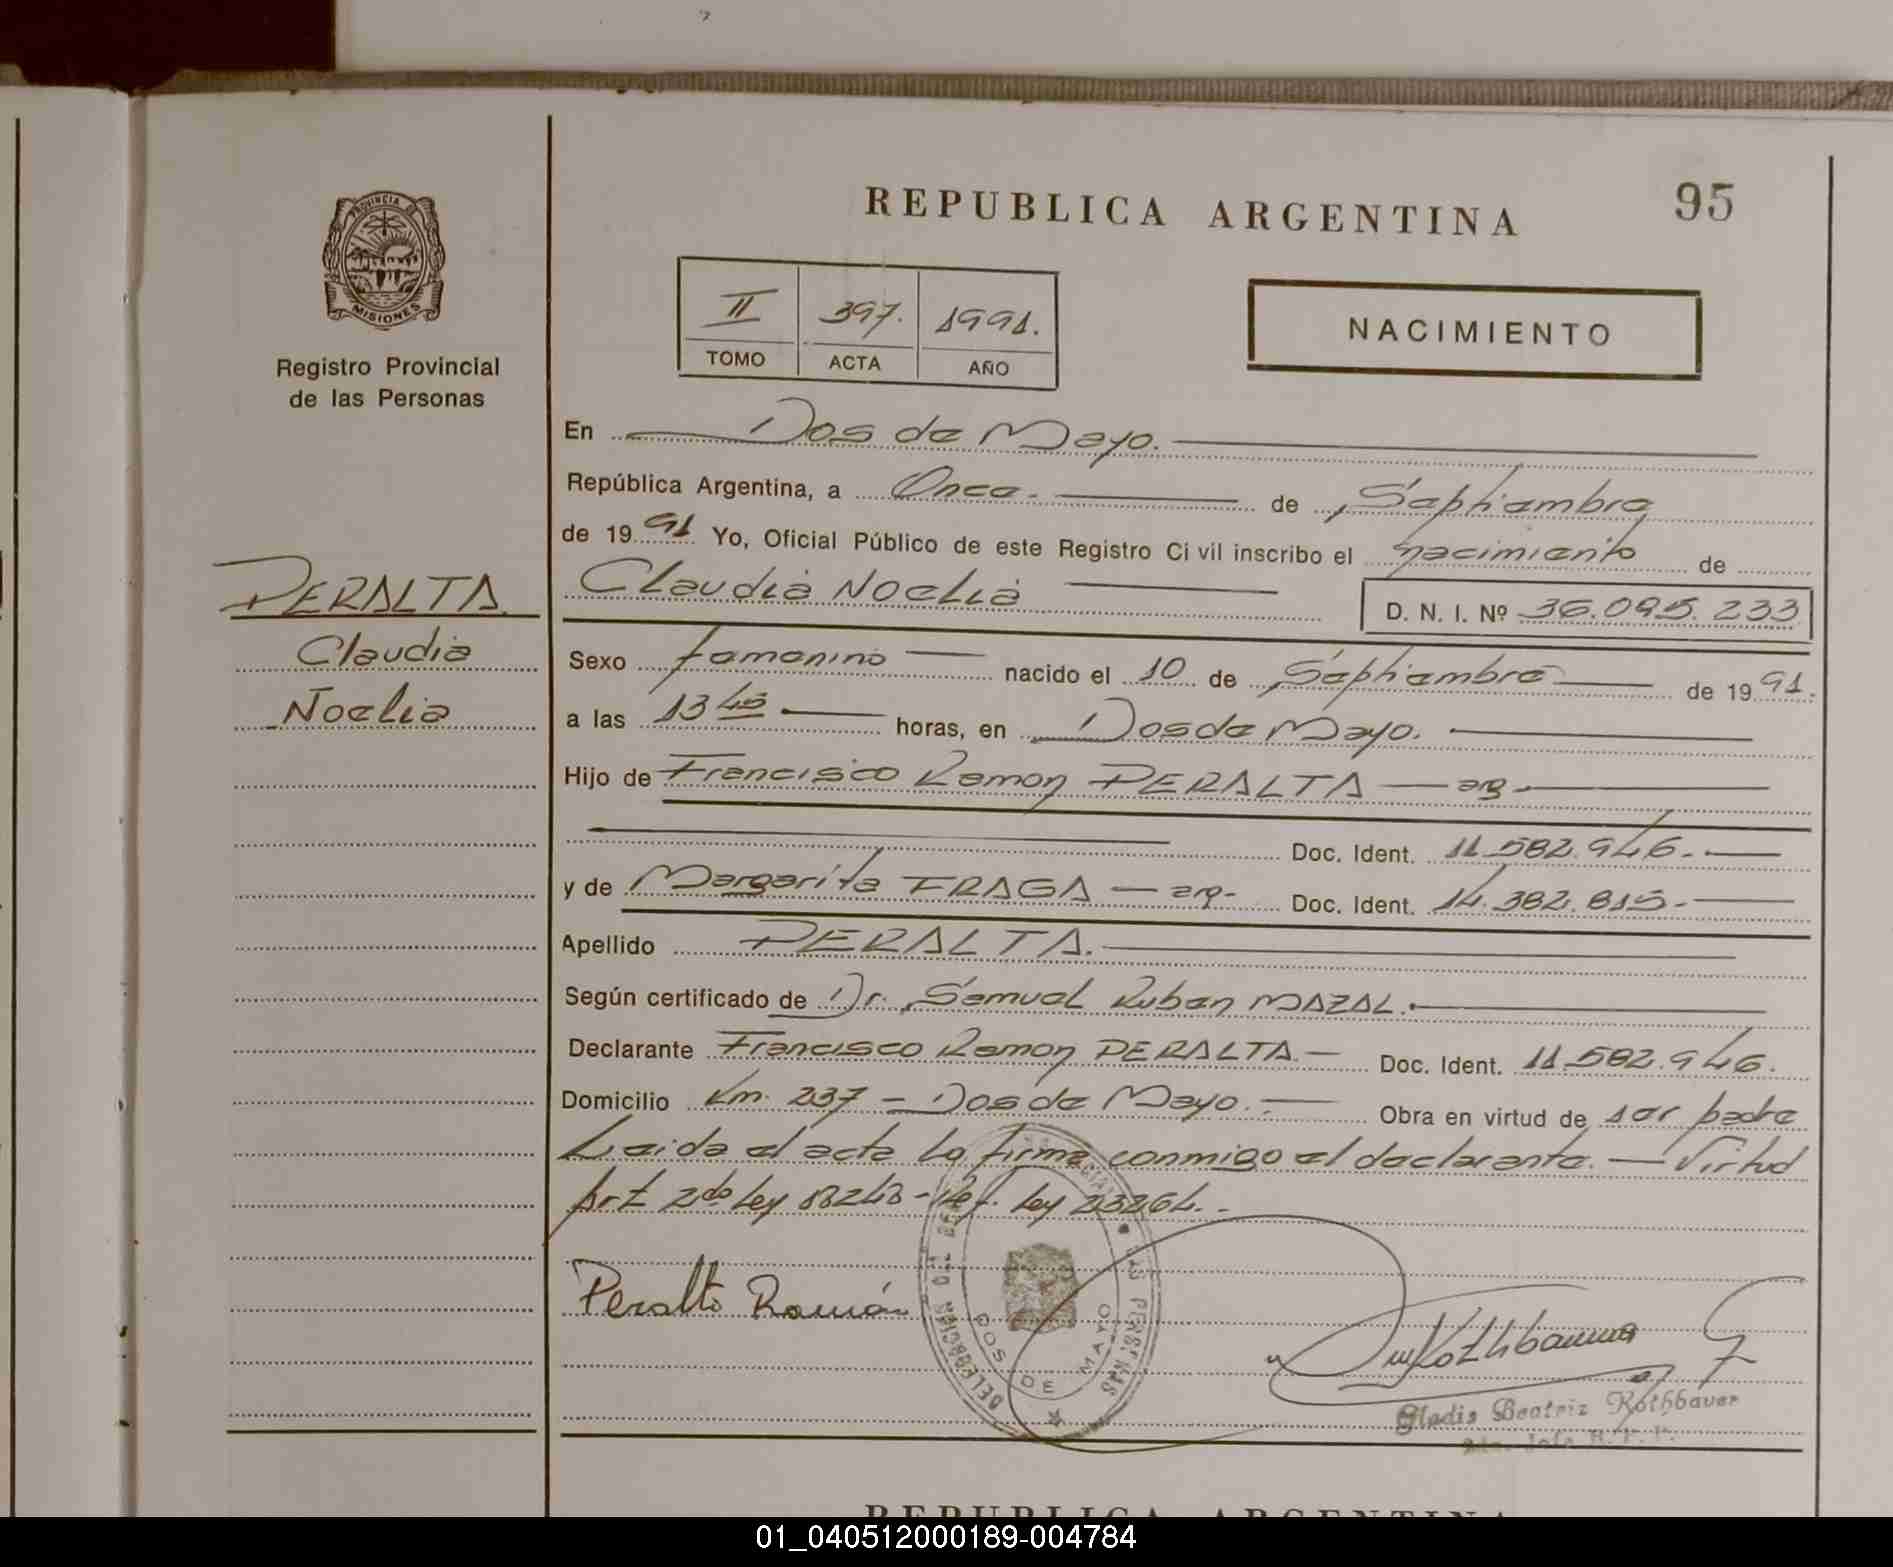 REPUBLICA ARGENTINA
95
PROVINCIA DE
MISIONES
Registro Provincial
de las Personas
II 397. 1991.
TOMO ACTA AÑO
NACIMIENTO
En Dos de Mayo.
República Argentina, a Once. de Septiembre
de 1991 Yo, Oficial Público de este Registro Civil inscribo el nacimiento de
Claudia Noelia D. N. I. Nº 36.095.233
PERALTA.
Claudia
Noelia
Sexo femenino nacido el 10 de Septiembre de 1991.
a las 13 45 horas, en Dos de Mayo.
Hijo de Francisco Ramon PERALTA — arg.
Doc. Ident. 11.582.946.
y de Margarita FRAGA — arg- Doc. Ident. 14.382.815.
Apellido PERALTA.
Según certificado de Dr. Samuel Ruben MAZAL.
Declarante Francisco Ramon PERALTA. — Doc. Ident. 11.582.946.
Domicilio Km. 237 – Dos de Mayo. Obra en virtud de ser padre
Leida el acta la firma conmigo el declarante. — Virtud
Art 2do Ley 18248 - Ref. Ley 23264.-
Peralta Ramón
DOS DE MAYO
Rothbauer
Gladis Beatriz Rothbauer
REPUBLICA ARGENTINA
01_040512000189-004784